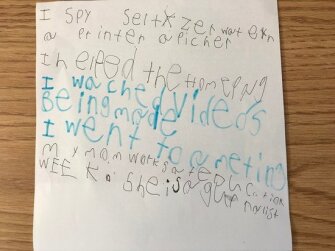 I SPY SeltXzer watern
a Printer a Picher
I helped the Homepng
I wached videos
Being made
I went to a meting
My mom works at education
WEEK
She is a